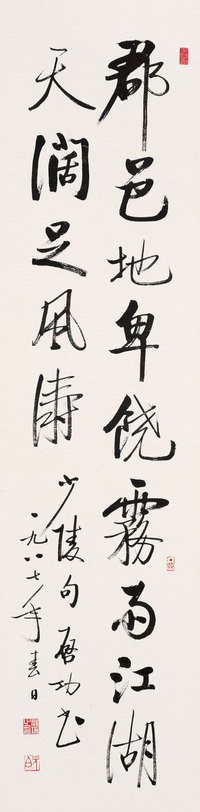 郡邑地卑饶霧雨江湖
天闊足風濤
少陵句啓功书
一九八七年春日